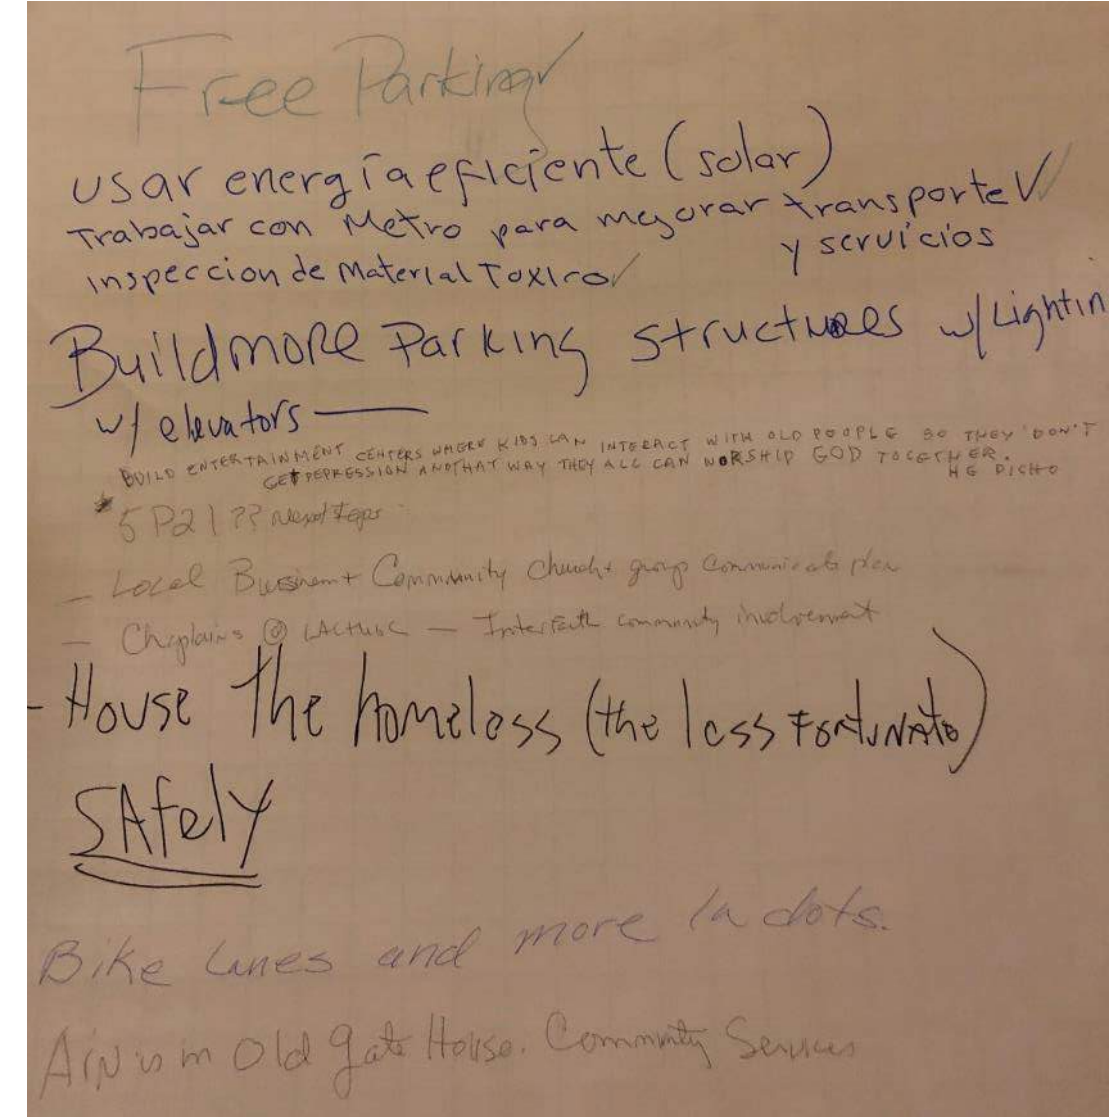 Free Parking ✓
usar energía eficiente (solar)
Trabajar con Metro para mejorar transporte ✓
y servicios
inspeccion de Material Toxico ✓
Build more Parking structures w/ Lightin
w/ elevators —
BUILD ENTERTAINMENT CENTERS WHERE KIDS CAN INTERACT WITH OLD PEOPLE SO THEY DON'T
GET DEPRESSION AND THAT WAY THEY ALL CAN WORSHIP GOD TOGETHER.
HE DICHO
* 5 P21 ?? Next Steps
- Local Community Church + group
- Chaplains @ — Interfaith community involvement
- House The homeless (the less Fortunate)
SAfely
Bike lanes and more la dots.
in Old gate House. Community Services